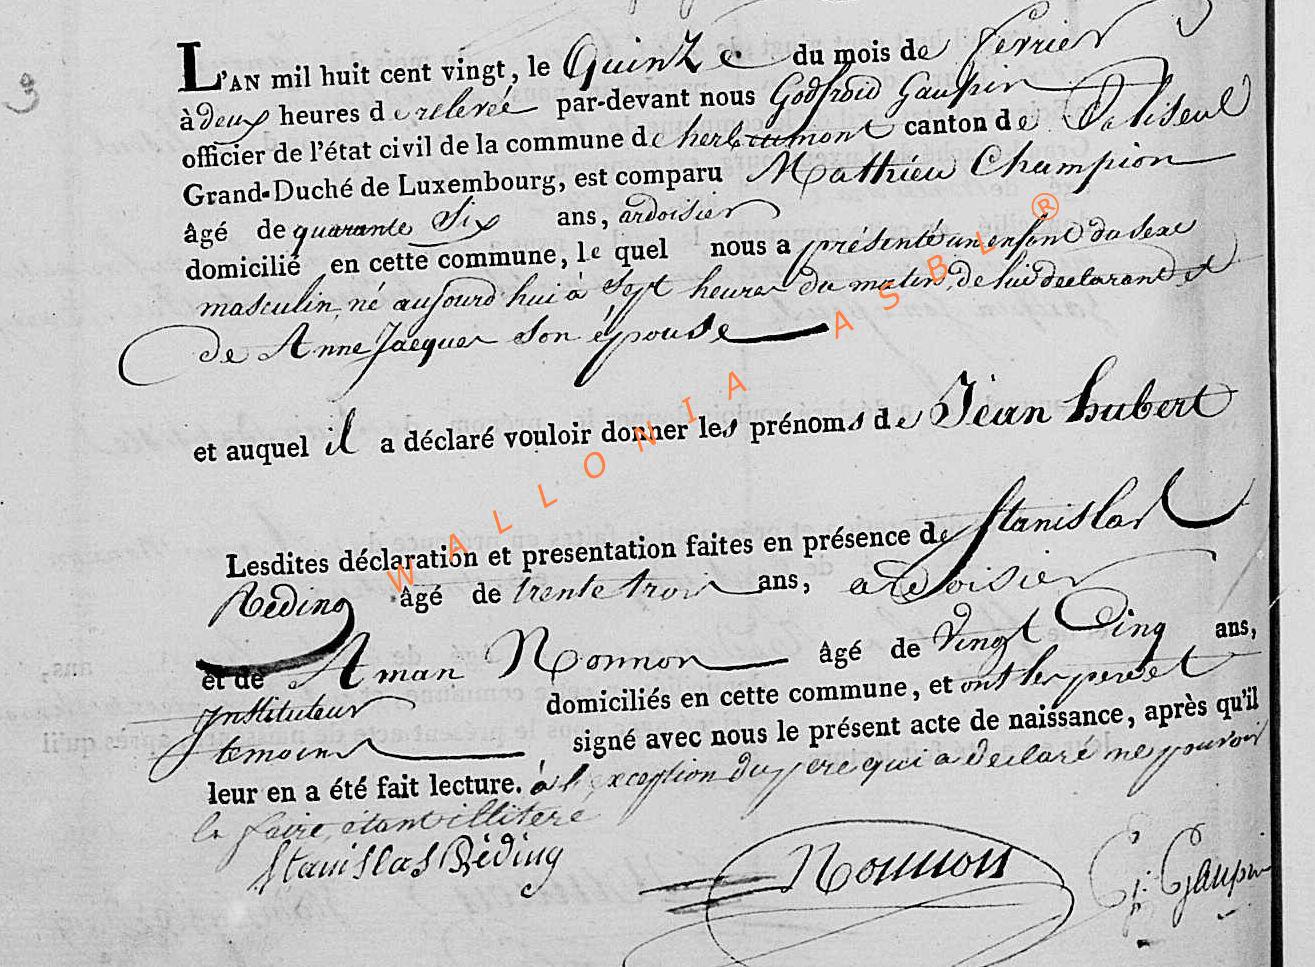 3
L'AN mil huit cent vingt, le Quinze du mois de ferrier
à deux heures de relevée par-devant nous Godfroid Gaupin
officier de l'état civil de la commune de herbeumont canton de Paliseul
Grand-Duché de Luxembourg, est comparu Mathieu Champion
âgé de quarante Six ans, ardoisier
domicilié en cette commune, le quel nous a présenté un enfant du sexe
masculin, né aujourd hui à Sept heures du matin, de lui declarant et
de Anne Jacques son épouse
et auquel il a déclaré vouloir donner les prénoms de Jean hubert
Lesdites déclaration et presentation faites en présence de Stanislas
Réding âgé de trente trois ans, ardoisier
et de Aman Nonnon âgé de vingt Cinq ans,
instituteur domiciliés en cette commune, et ont les pere et
temoins signé avec nous le présent acte de naissance, après qu'il
leur en a été fait lecture. à l'exception du pere qui a declaré ne pouvoir
le faire, étant illitere
Stanislas Réding Nonnon G: Gaupin
WALLONIA ASBL ®